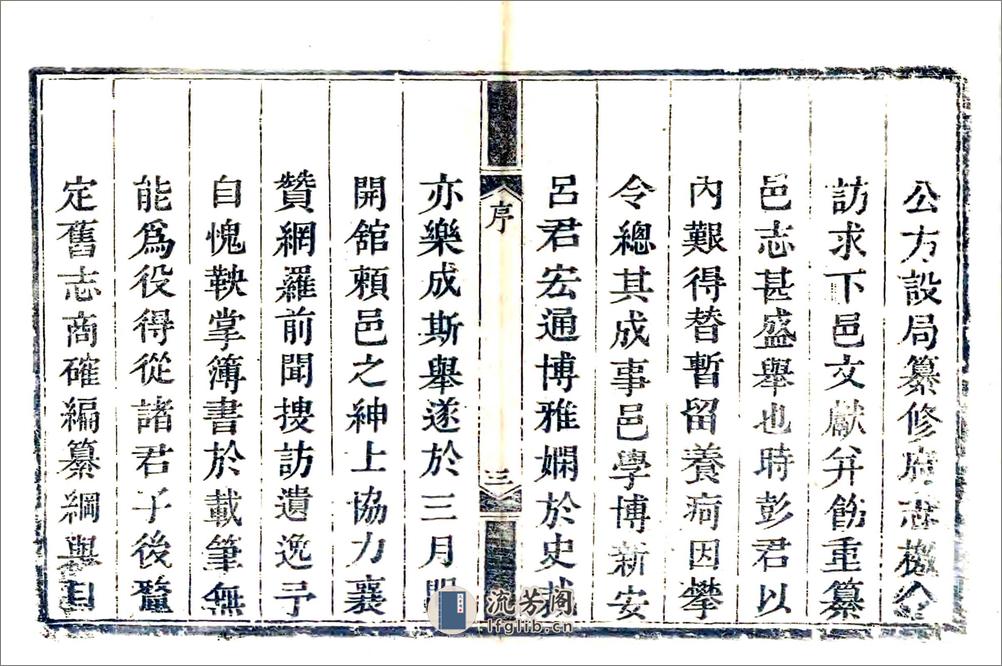 公方設局纂修府志檄令
訪求下邑文獻并飭重纂
邑志甚盛舉也時彭君以
內艱得替暫留養疴因攀
令總其成事邑學博新安
呂君宏通博雅嫻於史
序
三
亦樂成斯舉遂於三月
開舘賴邑之紳士協力襄
贊網羅前聞搜訪遺逸予
自愧鞅掌簿書於載筆無
能爲役得從諸君子後釐
定舊志商確編纂綱與目
流芳阁
lfglib.cn